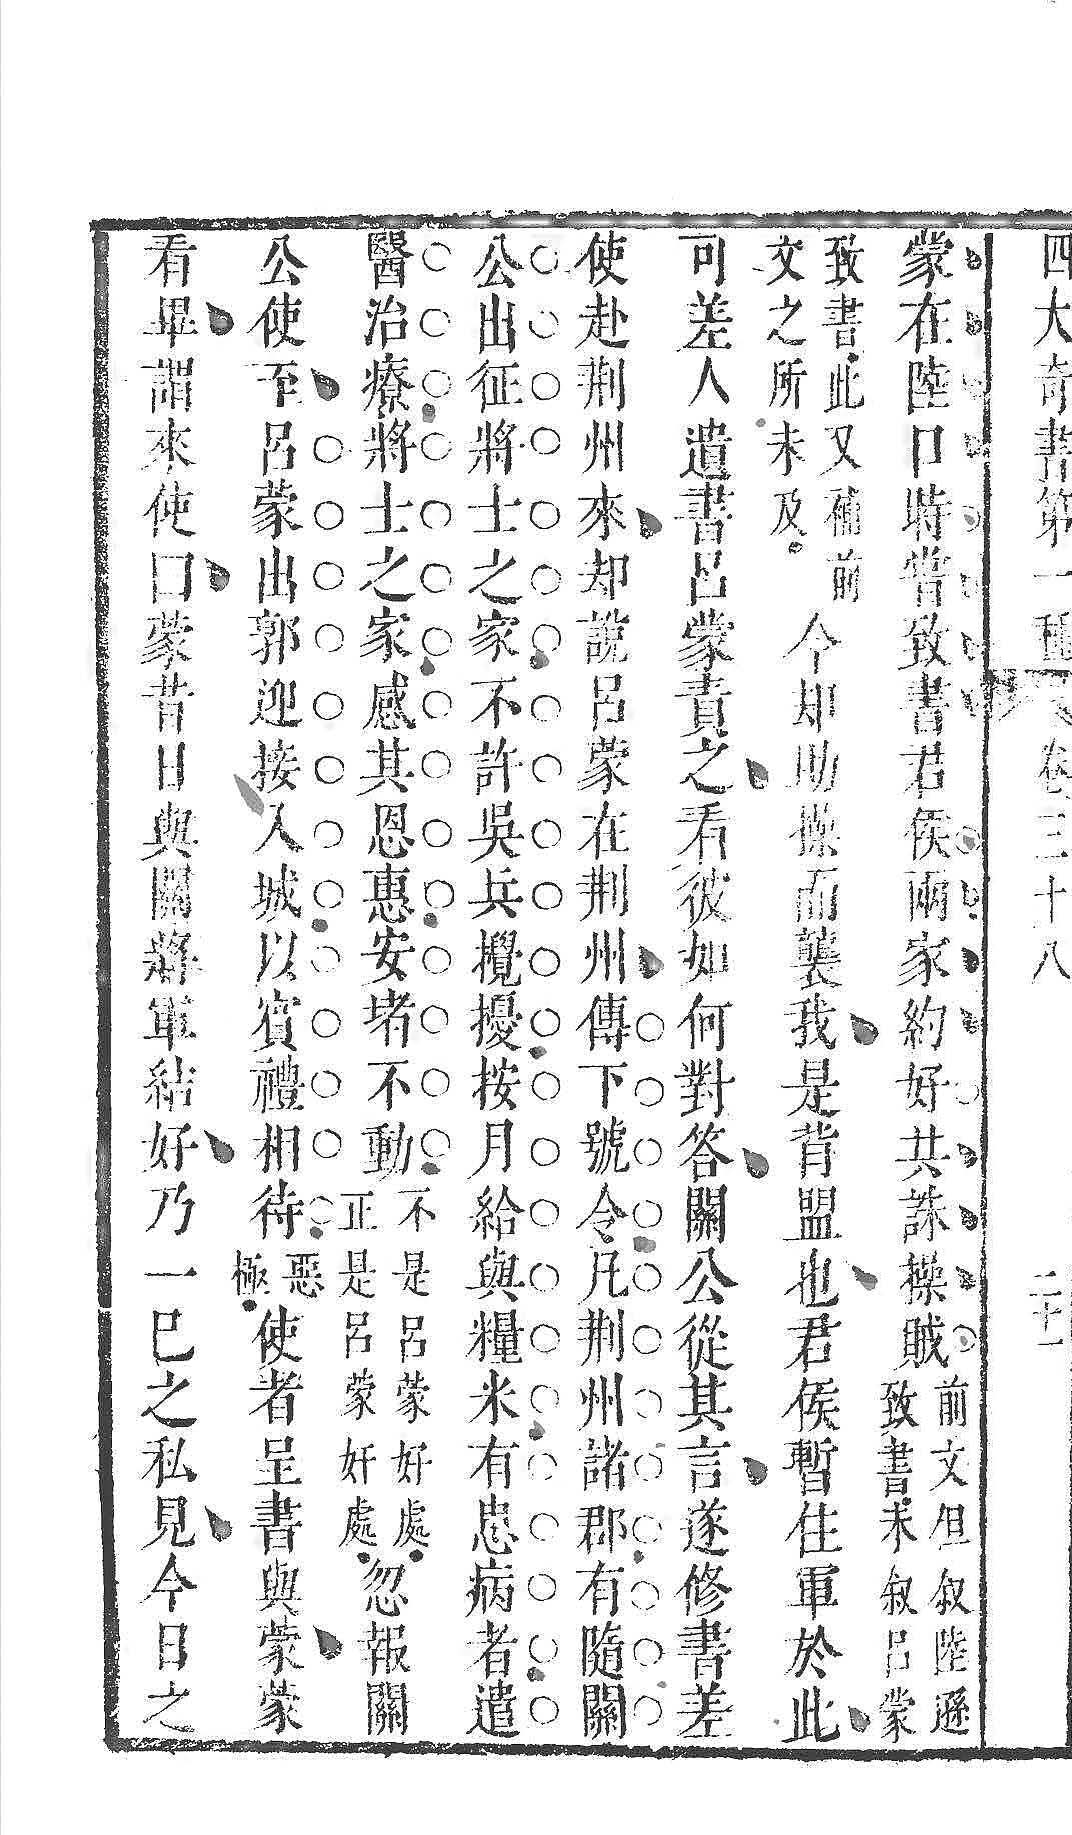 四大奇書第一種 卷三十八 二十一
蒙在陸口時嘗致書君侯兩家約好共誅操賊前文但叙陸遜致書未叙呂蒙
致書此又補前文之所未及今却助操而襲我是背盟也君侯暫住軍於此
可差人遺書呂蒙責之看彼如何對答關公從其言遂修書差
使赴荆州來却說呂蒙在荆州傳下號令凡荆州諸郡有隨關
公出征將士之家不許吳兵攪擾按月給與糧米有患病者遣
醫治療將士之家感其恩惠安堵不動不是呂蒙好處正是呂蒙奸處忽報關
公使至呂蒙出郭迎接入城以賓禮相待惡極使者呈書與蒙蒙
看畢謂來使曰蒙昔日與關將軍結好乃一已之私見今日之